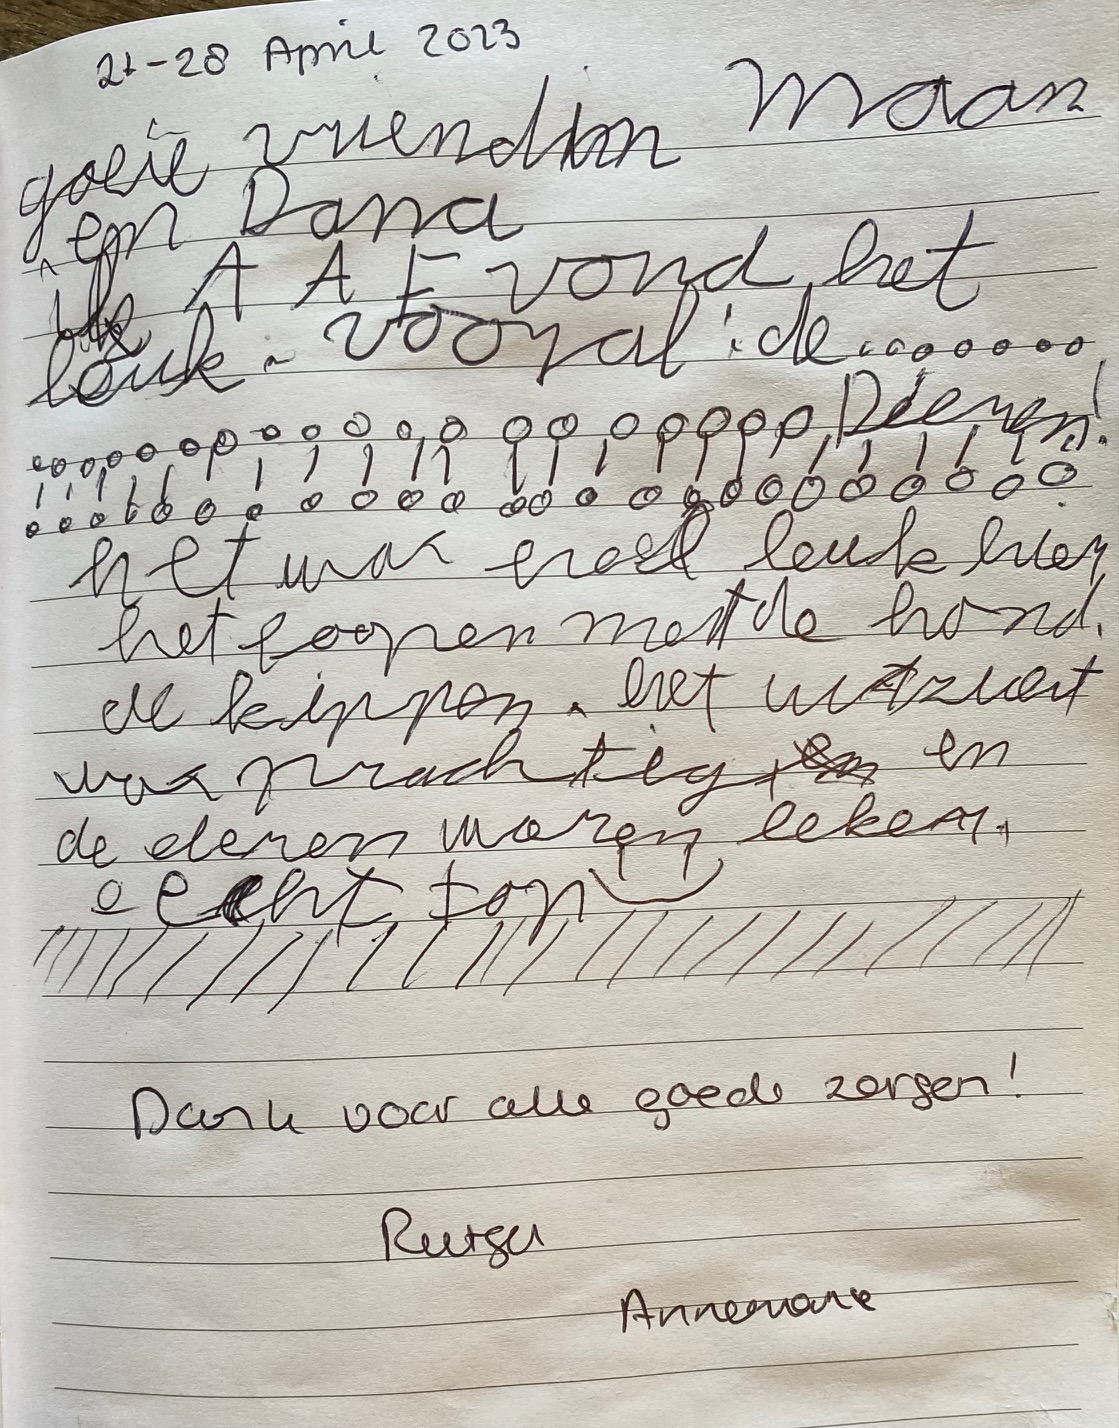 21-28 April 2023
goeie vriendin Maan
en Dana
ik A A F vond het
leuk. vooral: de..........
Dieren!
het was heel leuk hier
het loopen met de hond.
de kippen. het uitzicht
was prachtig, en
de dieren waren leken.
echt top
Dank voor alle goede zorgen!
Rutger
Annemarie